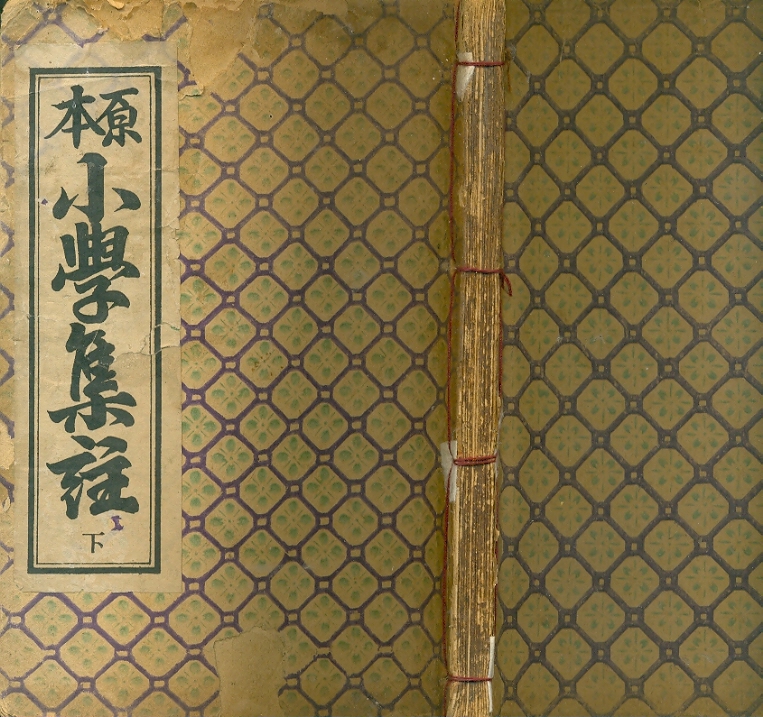 原本
小學集註
下